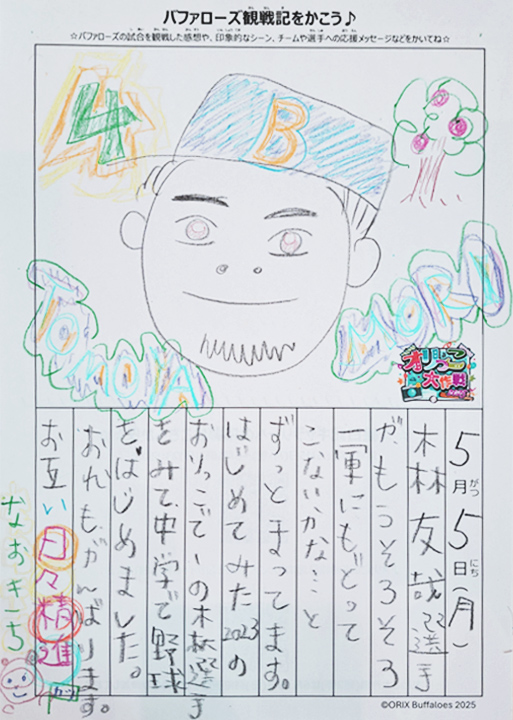 バファローズ観戦記をかこう♪
☆バファローズの試合を観戦した感想や、印象的なシーン、チームや選手への応援メッセージなどをかいてね☆
4
B
TOMOYA
MORI
大作戦
5月5日(月)
森友哉選手
が、もうそろそろ
一軍にもどって
こないかな…と
ずっとまってます。
はじめてみた2023の
おりっこでーの森選手
をみて、中学で野球
をはじめました。
おれもがんばります。
お互い日々精進
なおきっち
©ORIX Buffaloes 2025